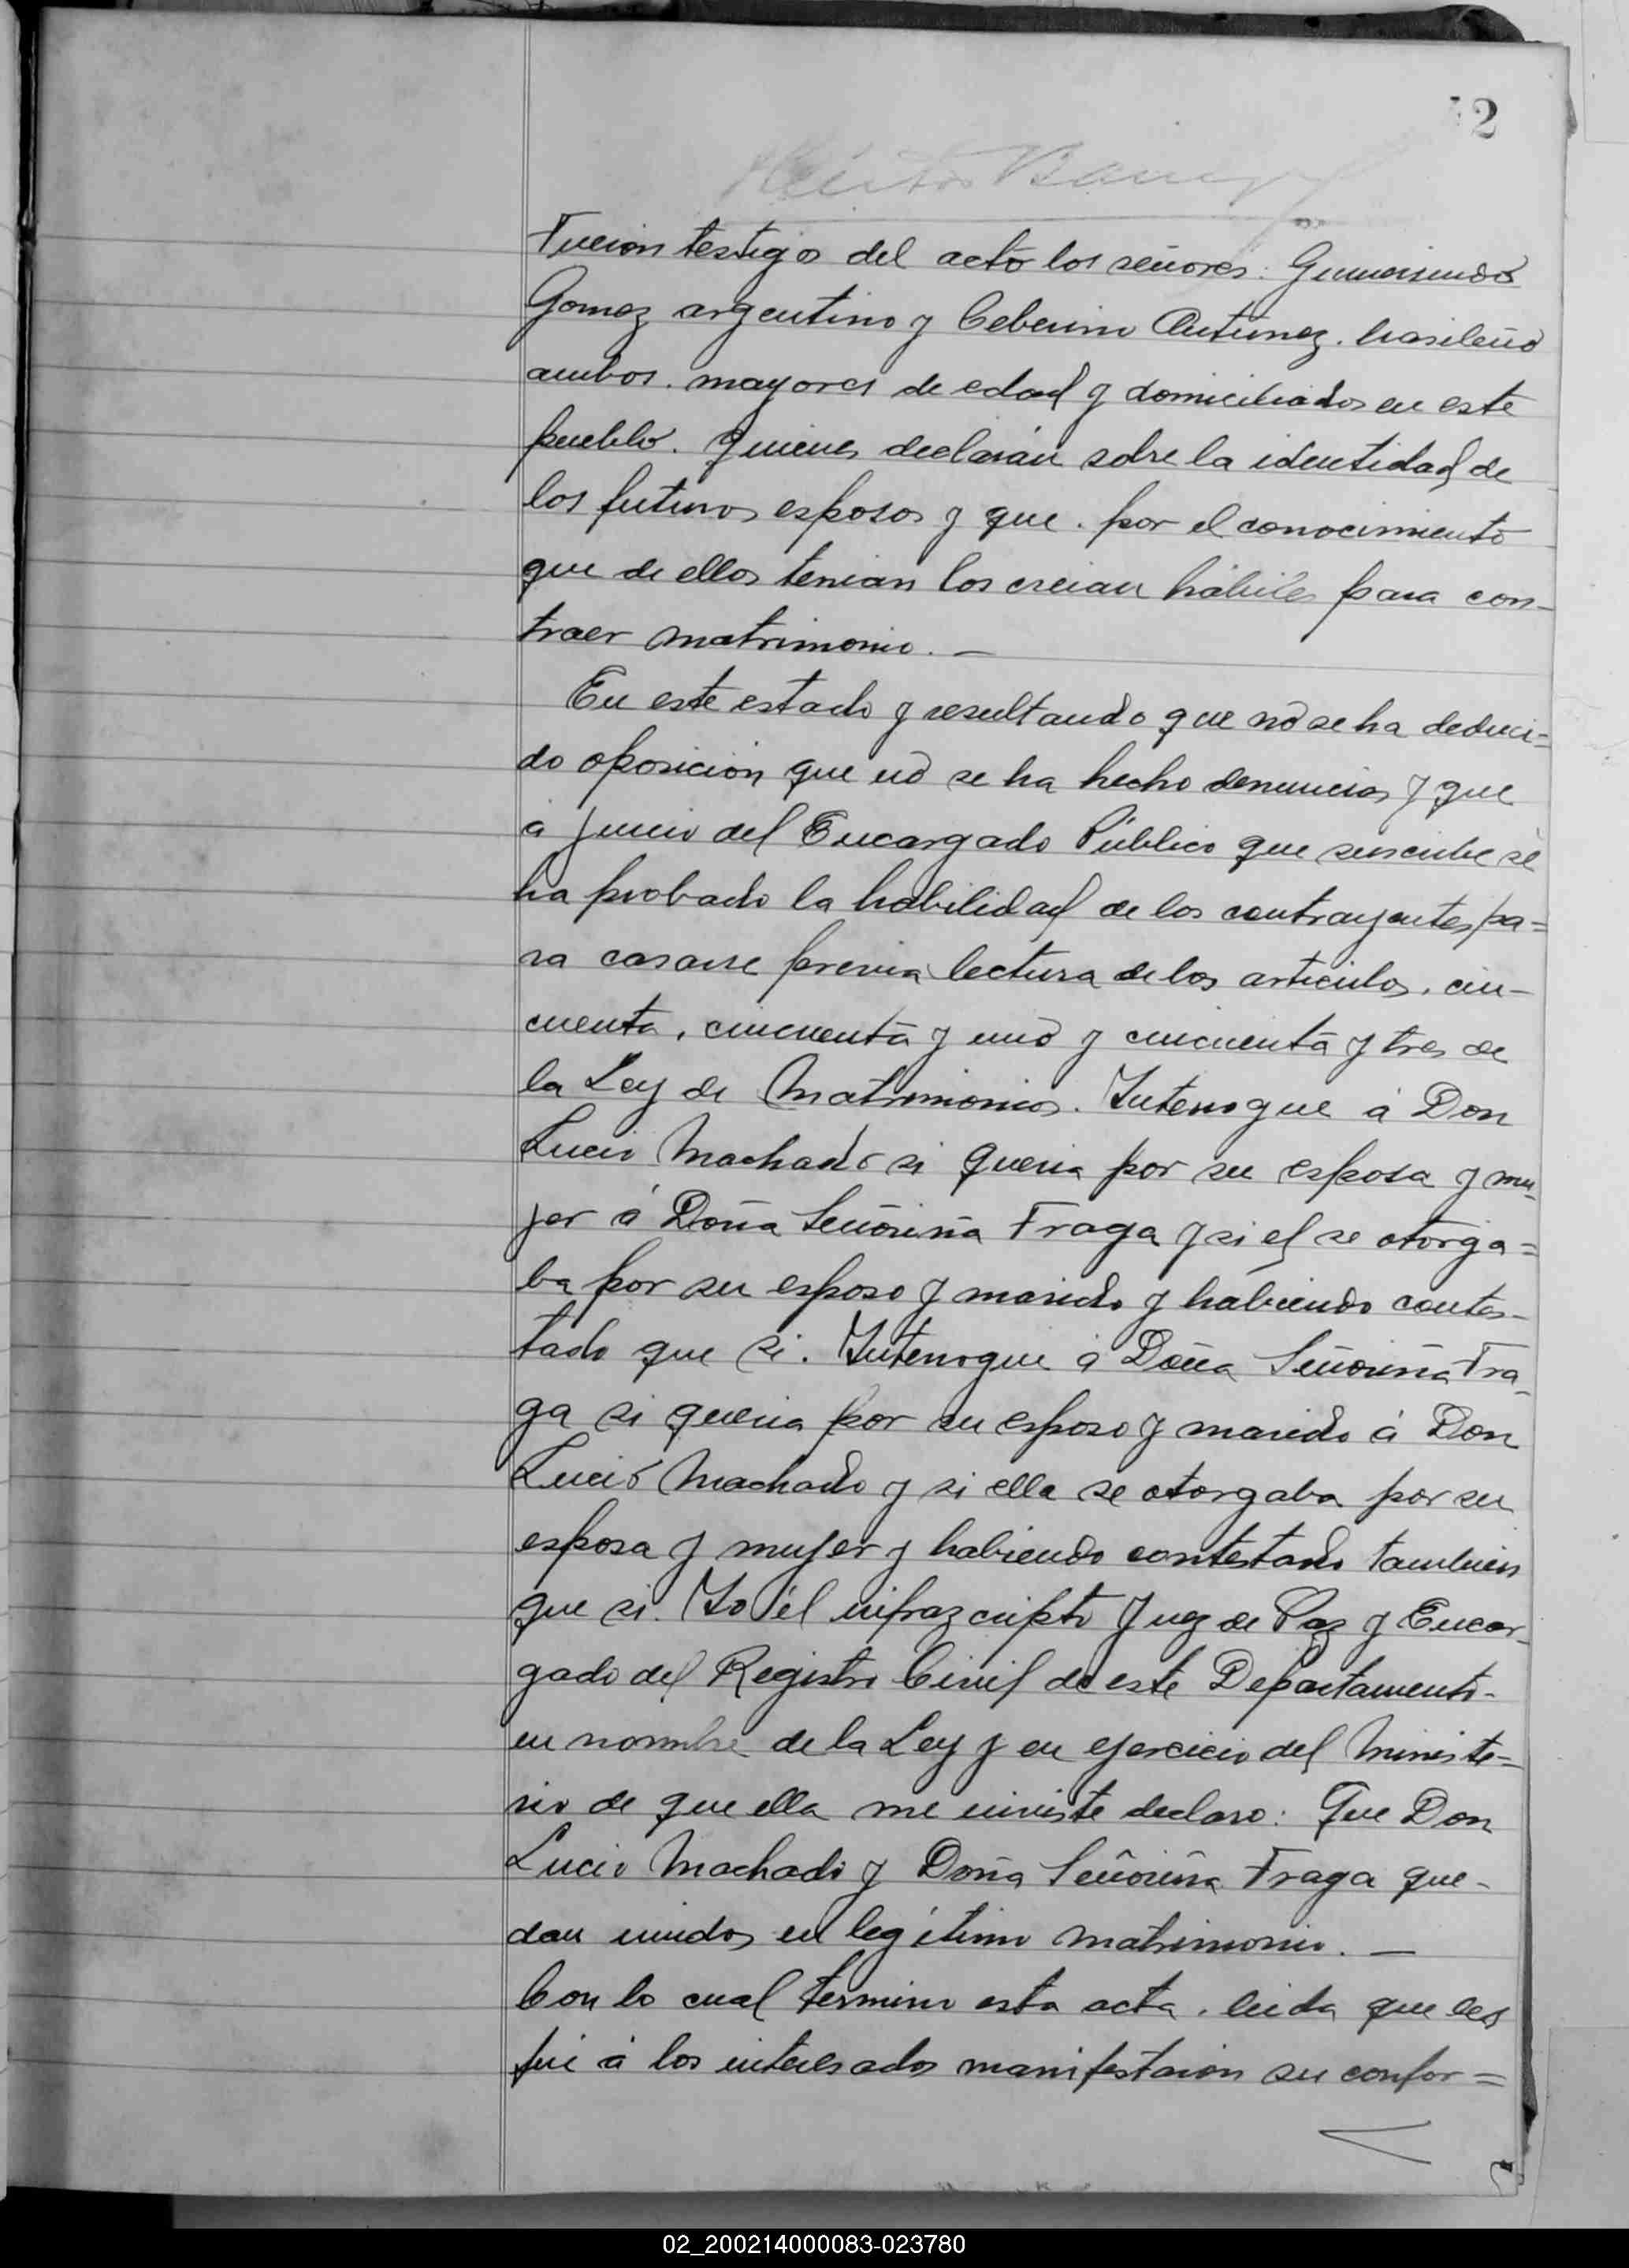 2
Fueron testigos del acto los señores: Gumersindo
Gomez argentino y Ceberino Antunez. brasileño
ambos. mayores de edad y domiciliados en este
pueblo. Quienes declarán sobre la identidad de
los futuros esposos y que. por el conocimiento
que de ellos tenian los creian hábiles para con-
traer matrimonio. —
En este estado y resultando que no se ha deduci=
do oposicion que no se ha hecho denuncias y que
á juicio del Encargado Público que suscribe se
ha probado la habilidad de los contrayentes pa=
ra casarse previa lectura de los articulos. cin-
cuenta, cincuenta y uno y cincuenta y tres de
la Ley de Matrimonios. Interrogue á Don
Lucio Machado si queria por su esposa y mu-
jer á Doña Señoriña Fraga y si el se otorga=
ba por su esposo y marido y habiendo contes-
tado que si. Interrogue á Doña Señoriña Fra-
ga si queria por su esposo y marido á Don
Lucio Machado y si ella se otorgaba por su
esposa y mujer y habiendo contestado tambien
que si. Yo él infrazcripto Juez de Paz y Encar-
gado del Registro Civil de este Departamento-
en nombre de la Ley y en ejercicio del Ministe=
rio de que ella me inviste declaro: Que Don
Lucio Machado y Doña Señoriña Fraga que-
dan unidos en legítimo matrimonio. —
Con lo cual termino esta acta. leida que les
fué á los interesados manifestaron su confor=
02_200214000083-023780